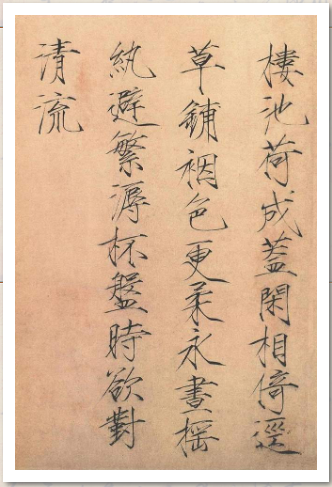 棲池荷成蓋閑相倚逕
草鋪裀色更柔永晝搖
紈避繁溽杯盤時欲對
清流